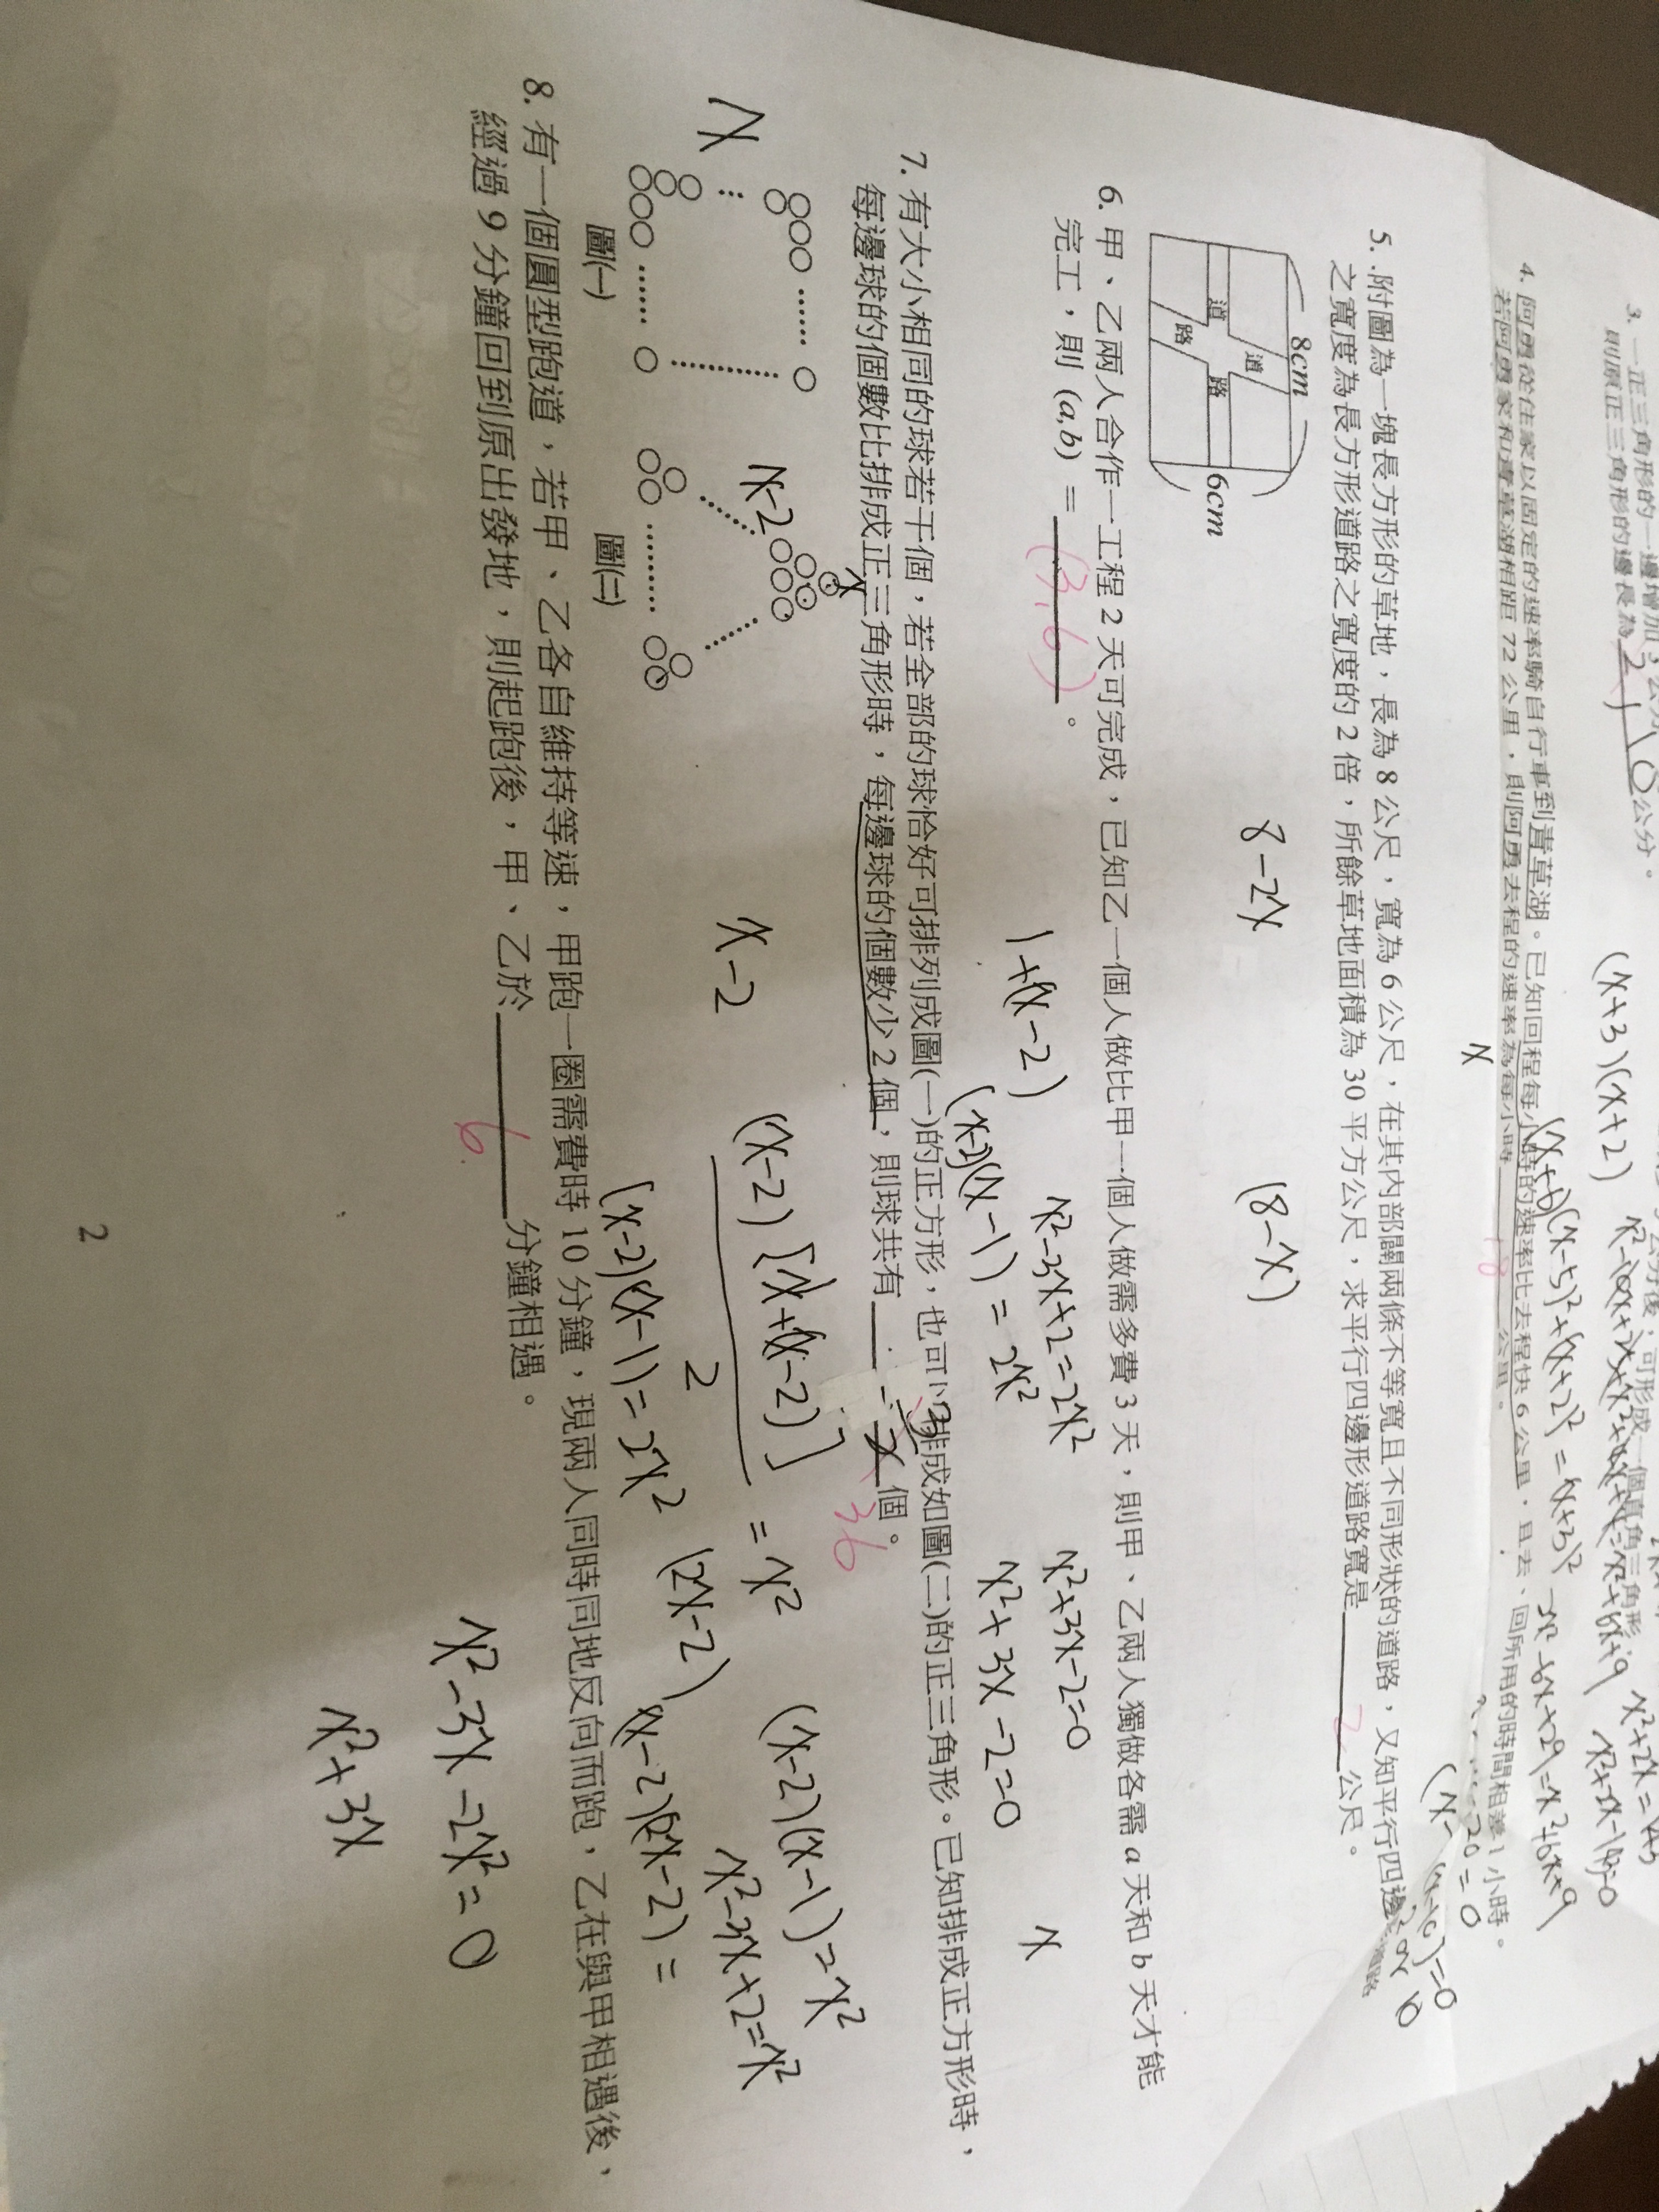 3. 一正三角形的一邊增加3公分
則原正三角形的邊長為 公分。
(x+3)(x+2)
4. 阿勇從住家以固定的速率騎自行車到青草湖。已知回程每小時的速率比去程快6公里,且去、回所用的時間相差1小時。
若阿勇家和青草湖相距72公里,則阿勇去程的速率為每小時 18 公里。
x
5. .附圖為一塊長方形的草地,長為8公尺,寬為6公尺,在其內部闢兩條不等寬且不同形狀的道路,又知平行四邊
之寬度為長方形道路之寬度的2倍,所餘草地面積為30平方公尺,求平行四邊形道路寬是 2 公尺。
8cm
道
路
道
路
6cm
8-2x
(8-x)
6. 甲、乙兩人合作一工程2天可完成,已知乙一個人做比甲一個人做需多費3天,則甲、乙兩人獨做各需a天和b天才能
完工,則 (a,b) = (3,6) 。
1+(x-2)
x²-3x+2=2x²
x²+3x-2=0
x
(x-2)(x-1)=2x²
x²+3x-2=0
7. 有大小相同的球若干個,若全部的球恰好可排列成圖(一)的正方形,也可以排成如圖(二)的正三角形。已知排成正方形時,
每邊球的個數比排成正三角形時,每邊球的個數少2個,則球共有 36 個。
x
x-2
x
x-2
(x-2)[x+(x-2)]
2
=x²
(x-2)(x-1)=x²
x²-3x+2=x²
(x-2)(x-1)=2x²
(2x-2)
(x-2)(2x-2)=
圖(一)
圖(二)
8. 有一個圓型跑道,若甲、乙各自維持等速,甲跑一圈需費時10分鐘,現兩人同時同地反向而跑,乙在與甲相遇後,
經過9分鐘回到原出發地,則起跑後,甲、乙於 6 分鐘相遇。
x²-3x-2x²=0
x²+3x
2